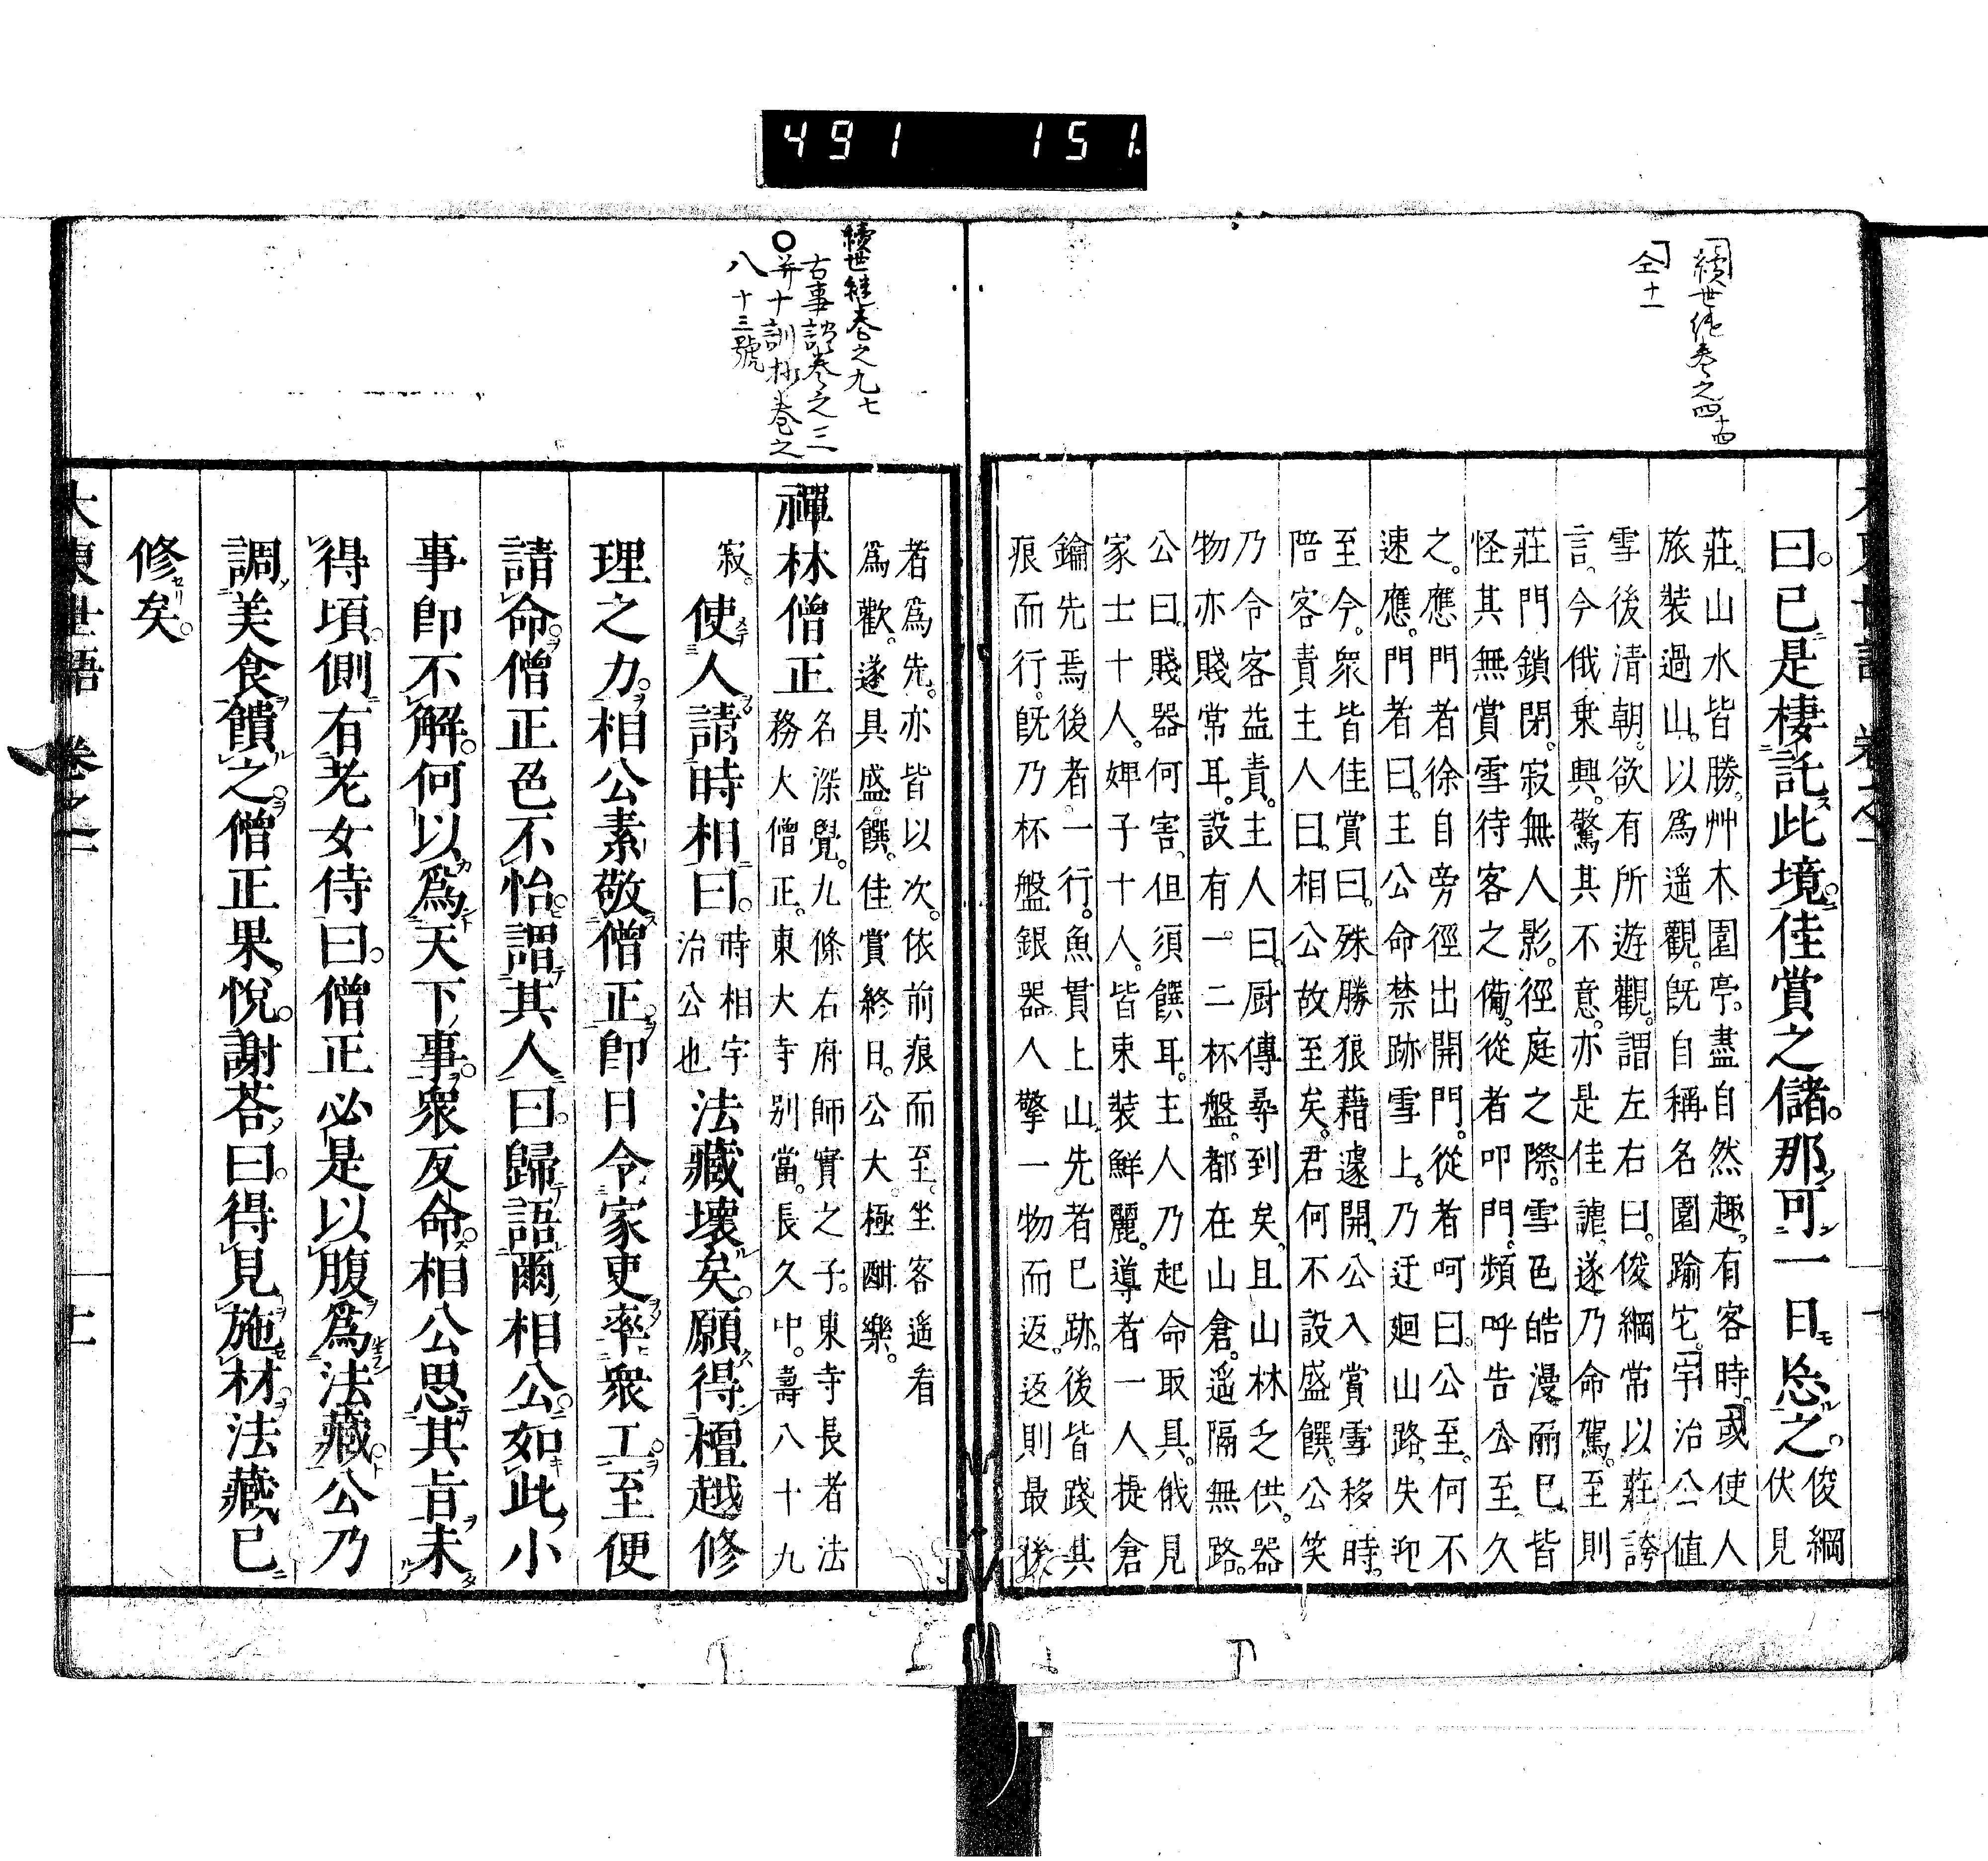 491 151
續世継巻之四 十四
仝十一
曰已是棲託此境佳賞之儲那可一日忘之。俊綱
伏見
莊。山水皆勝。艸木園亭。盡自然趣。有客時。或使人
旅裝過山。以爲遥觀。既自稱名園踰宅。宇治公一値
雪後清朝。欲有所遊觀。謂左右曰。俊綱常以莊誇
言。今俄乗興。驚其不意。亦是佳謔。遂乃命駕。至則
莊門鎖閉。寂無人影。徑庭之際。雪色皓漫而已。皆
怪其無賞雪待客之備。從者叩門。頻呼告公至。久
之。應門者徐自旁徑出開門。從者呵曰。公至。何不
速應。門者曰。主公命禁跡雪上。乃迂廻山路。失迎
至今。衆皆佳賞曰。殊勝狼藉遽開。公入賞雪移時。
陪客責主人曰。相公故至矣。君何不設盛饌。公笑
乃令客益責。主人曰。厨傳尋到矣。且山林乏供。器
物亦賤常耳。設有一二杯盤。都在山倉。遥隔無路。
公曰。賤器何害。但須饌耳。主人乃起命取具。俄見
家士十人。婢子十人。皆束裝鮮麗。導者一人提倉
鑰先焉。後者一行。魚貫上山。先者已跡。後皆踐其
痕而行。既乃杯盤銀器人擎一物而返。返則最後
續世継巻之九 七
古事談巻之三
〇并十訓抄巻之
八 十三號
者爲先。亦皆以次。依前痕而至。坐客遥看
爲歡。遂具盛饌。佳賞終日。公大極酣樂。
禪林僧正名深覺。九條右府師實之子。東寺長者法
務大僧正。東大寺别當。長久中。壽八十九
寂。使人請時相曰。時相宇
治公也法藏壞矣。願得檀越修
理之力。相公素敬僧正。即日令家吏率衆工至便
請命。僧正色不怡。謂其人曰。歸語爾相公。如此小
事即不解。何以爲天下事。衆反命。相公思其旨未
得頃。側有老女侍曰。僧正必是以腹爲法藏。公乃
調美食饋之。僧正果悅。謝荅曰。得見施材。法藏已
修矣。
大東世語 卷之一 十一